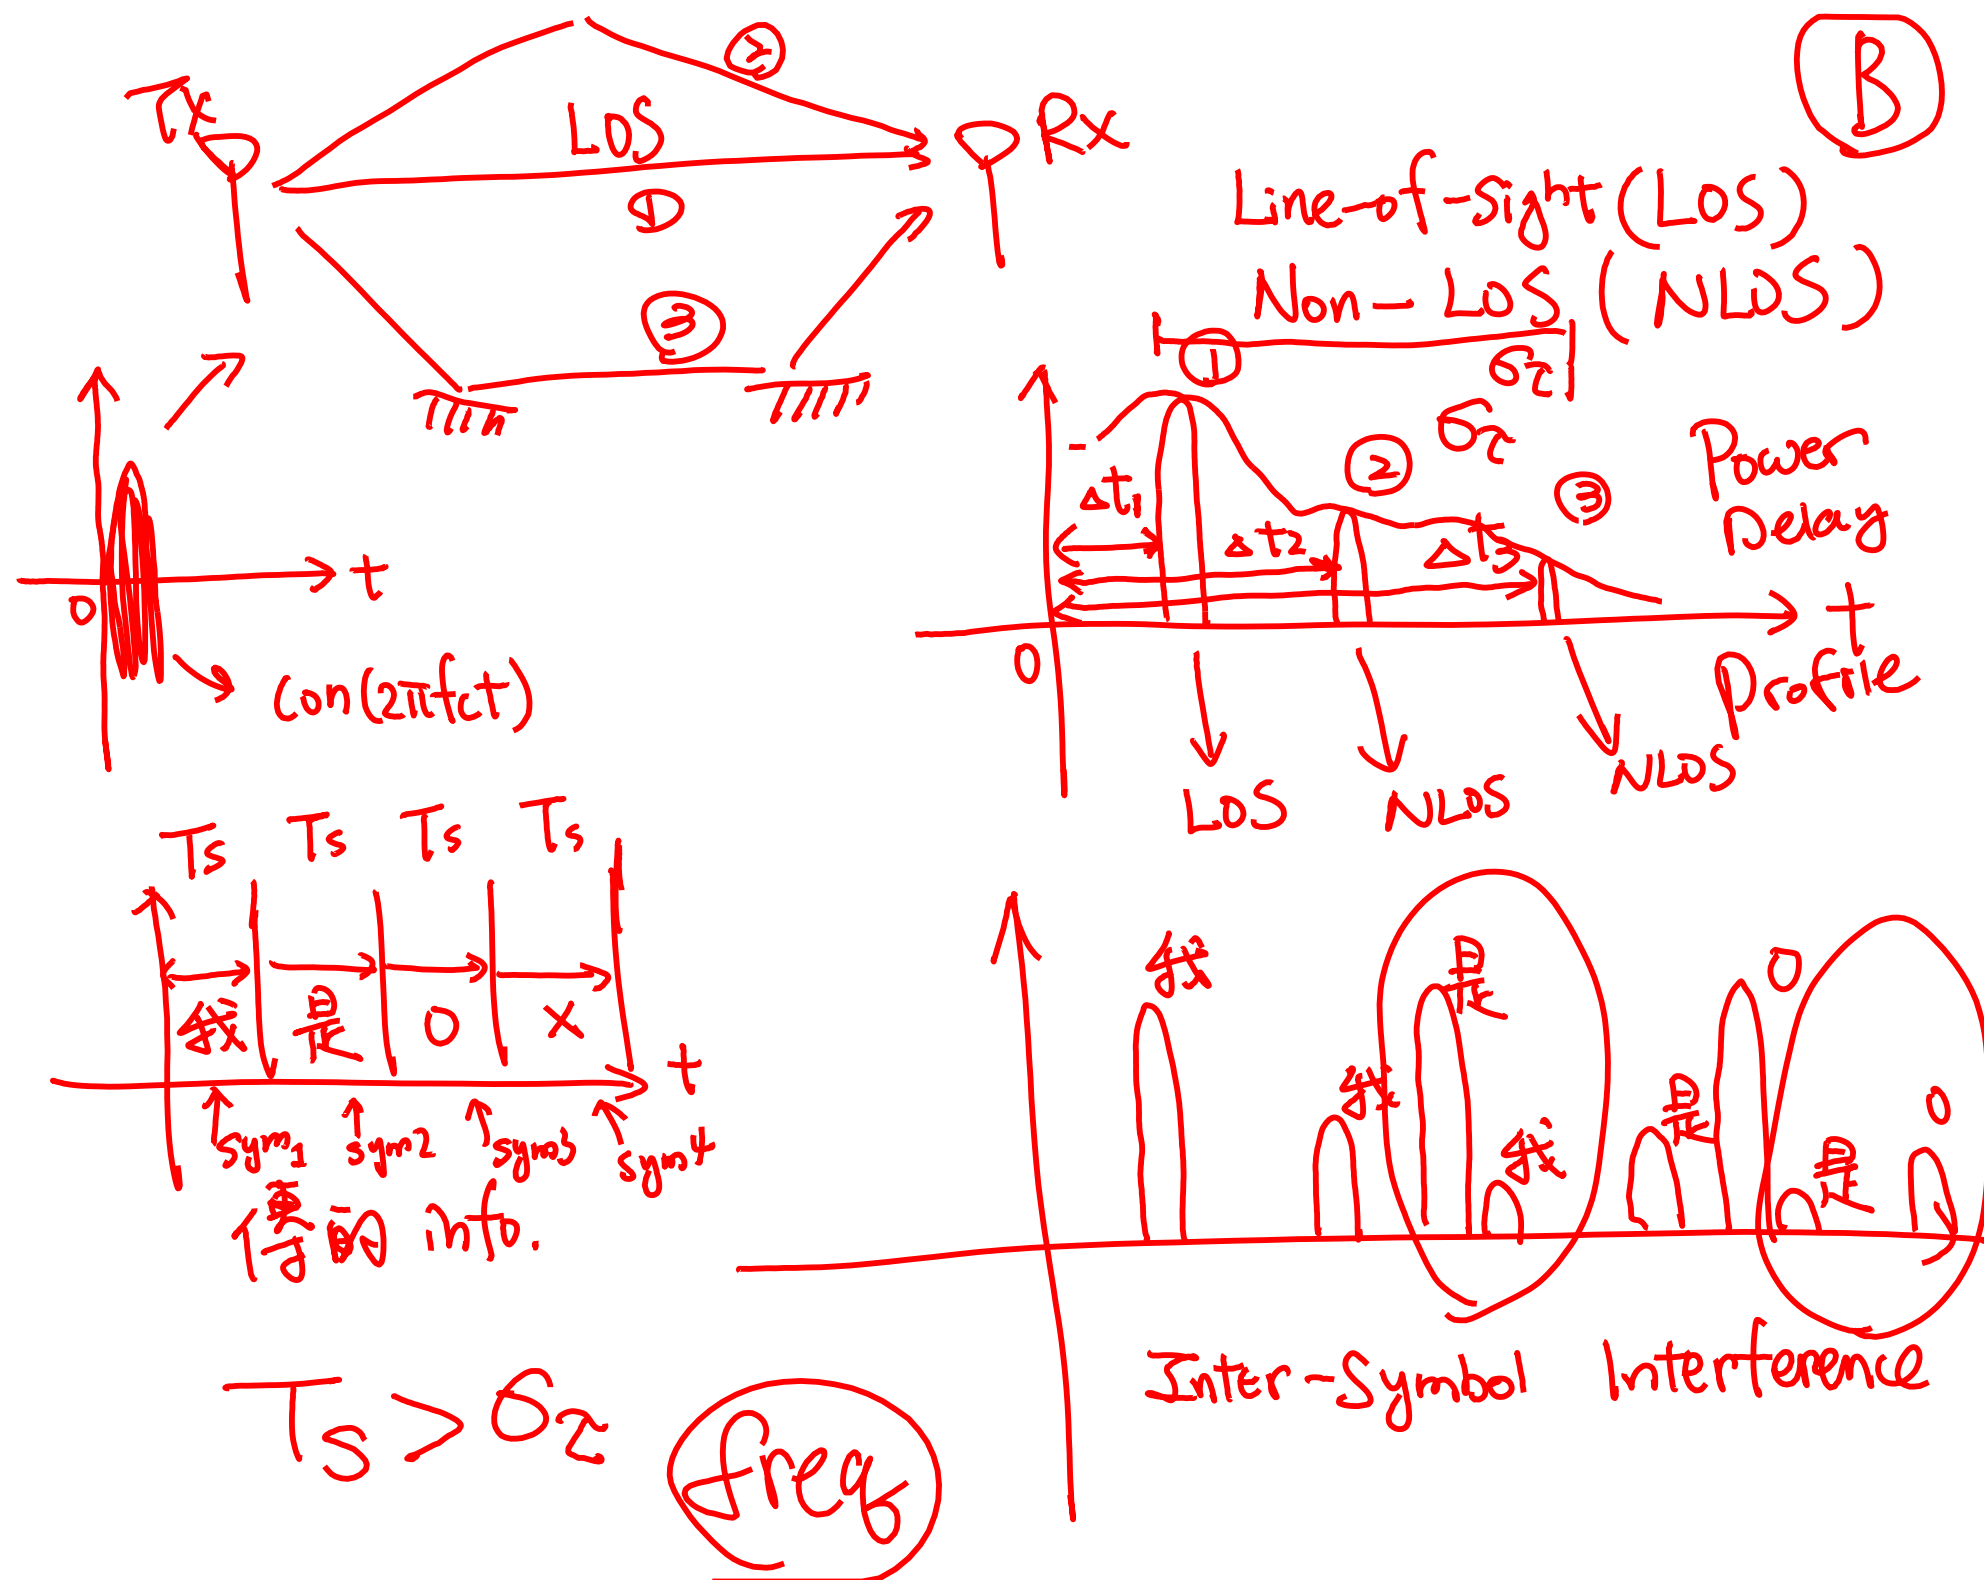 B
Tx
②
LOS
①
Rx
③
Line-of-sight (LOS)
Non-LOS (NLOS)
① στ
στ
②
③
Power
Delay
Profile
Δt1
Δt2
Δt3
t
0
LOS
NLOS
NLOS
t
0
con(2πfct)
Ts Ts Ts Ts
我 是 O X
t
sym1 sym2 sym3 sym4
傳的 info.
Ts > στ
freq
我
我
是
我
是
O
是
O
Inter-Symbol Interference